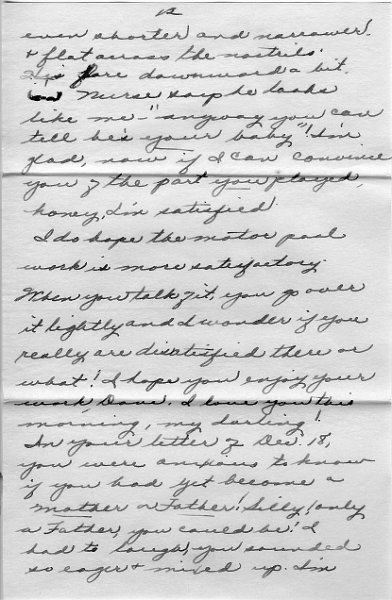 12
even shorter and narrower!
& flat across the nostrils.
His fore downward a bit.
Nurse says he looks
like me - "anyway you can
tell he's your baby"! I'm
glad, now if I can convince
you of the part you played,
honey, I'm satisfied!
I do hope the motor pool
work is more satisfactory.
When you talk of it, you go over
it lightly and I wonder if you
really are disatisfied there or
what! I hope you enjoy your
work, Dave. I love you this
morning, my darling!
In your letter of Dec. 18,
you were anxious to know
if you had yet become a
mother or Father! Silly! only
a Father, you could be! I
had to laugh, you sounded
so eager & mixed up. I'm